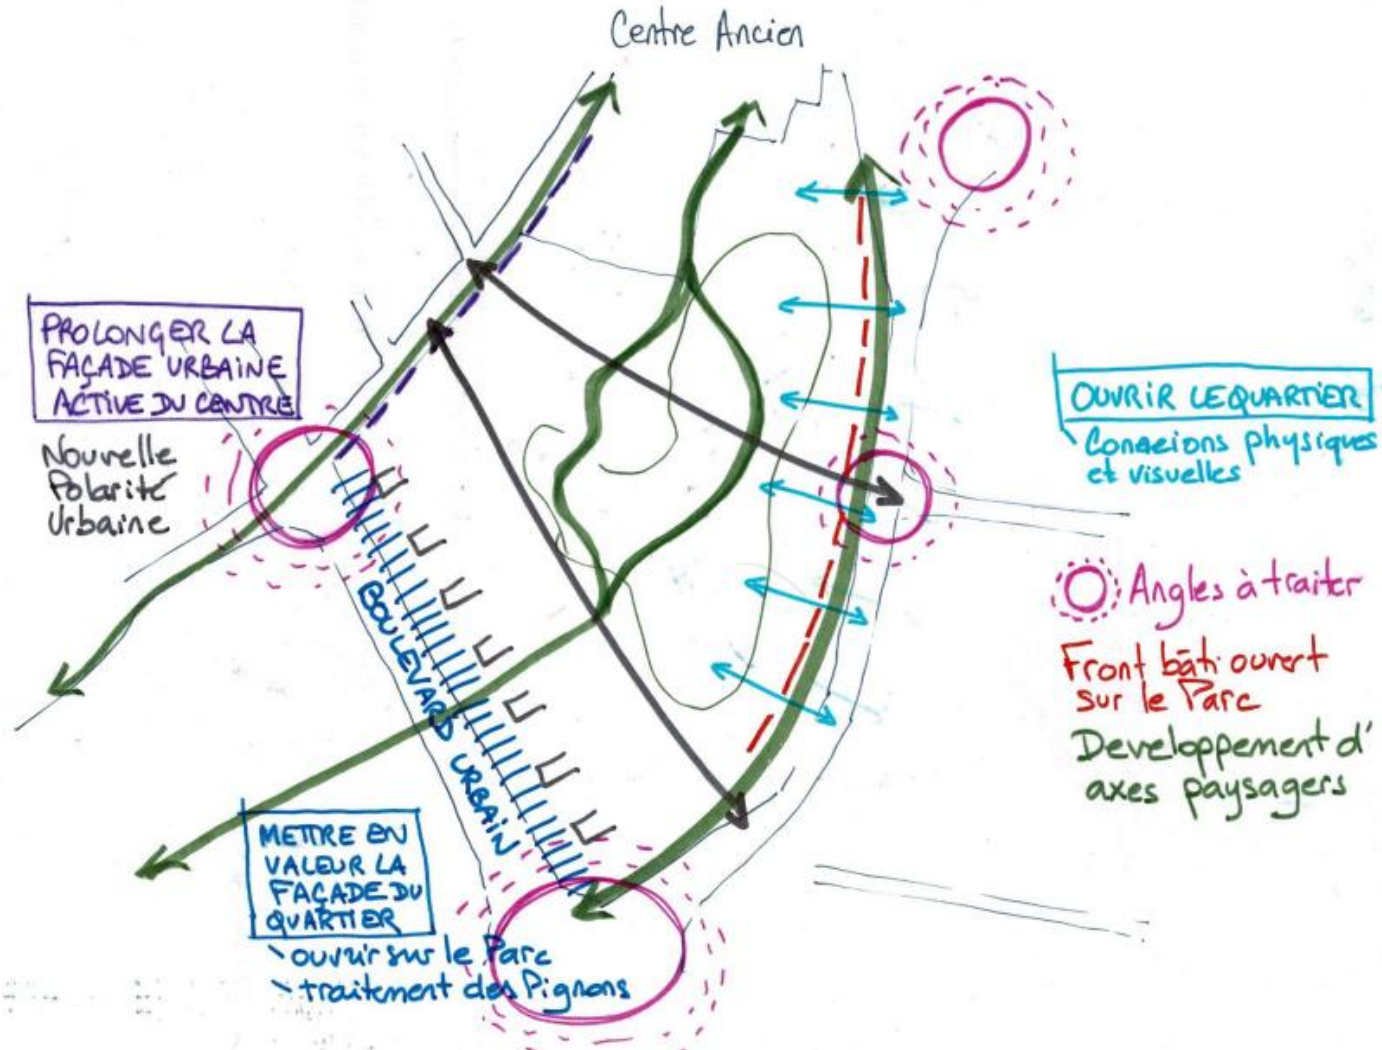 Centre Ancien
PROLONGER LA
FAÇADE URBAINE
ACTIVE DU CENTRE
Nouvelle
Polarité
Urbaine
BOULEVARD URBAIN
METTRE EN
VALEUR LA
FAÇADE DU
QUARTIER
ouvrir sur le Parc
traitement des Pignons
OUVRIR LE QUARTIER
Connecions physiques
et visuelles
Angles à traiter
Front bâti ouvert
sur le Parc
Developpement d'
axes paysagers